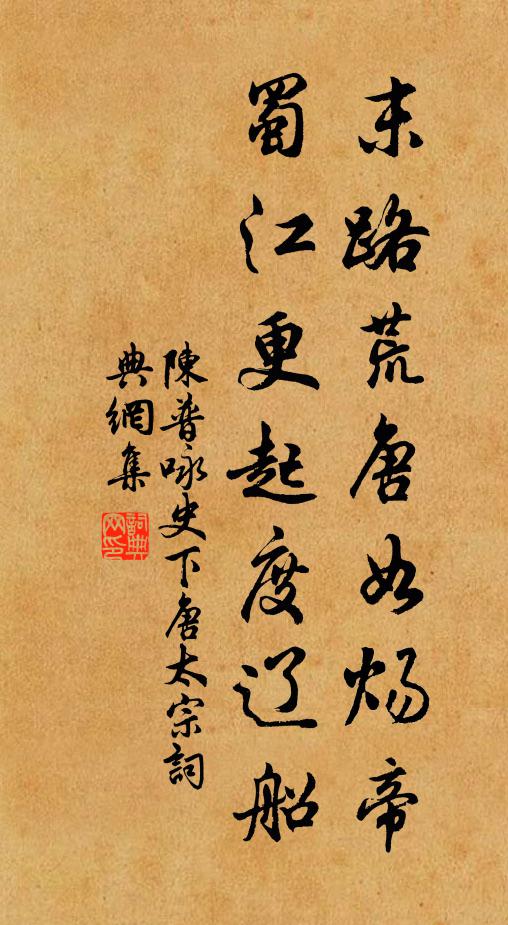 末路荒唐如炀帝
蜀江更起度辽船
陳普咏史下唐太宗詞
典網集
詞典
网印